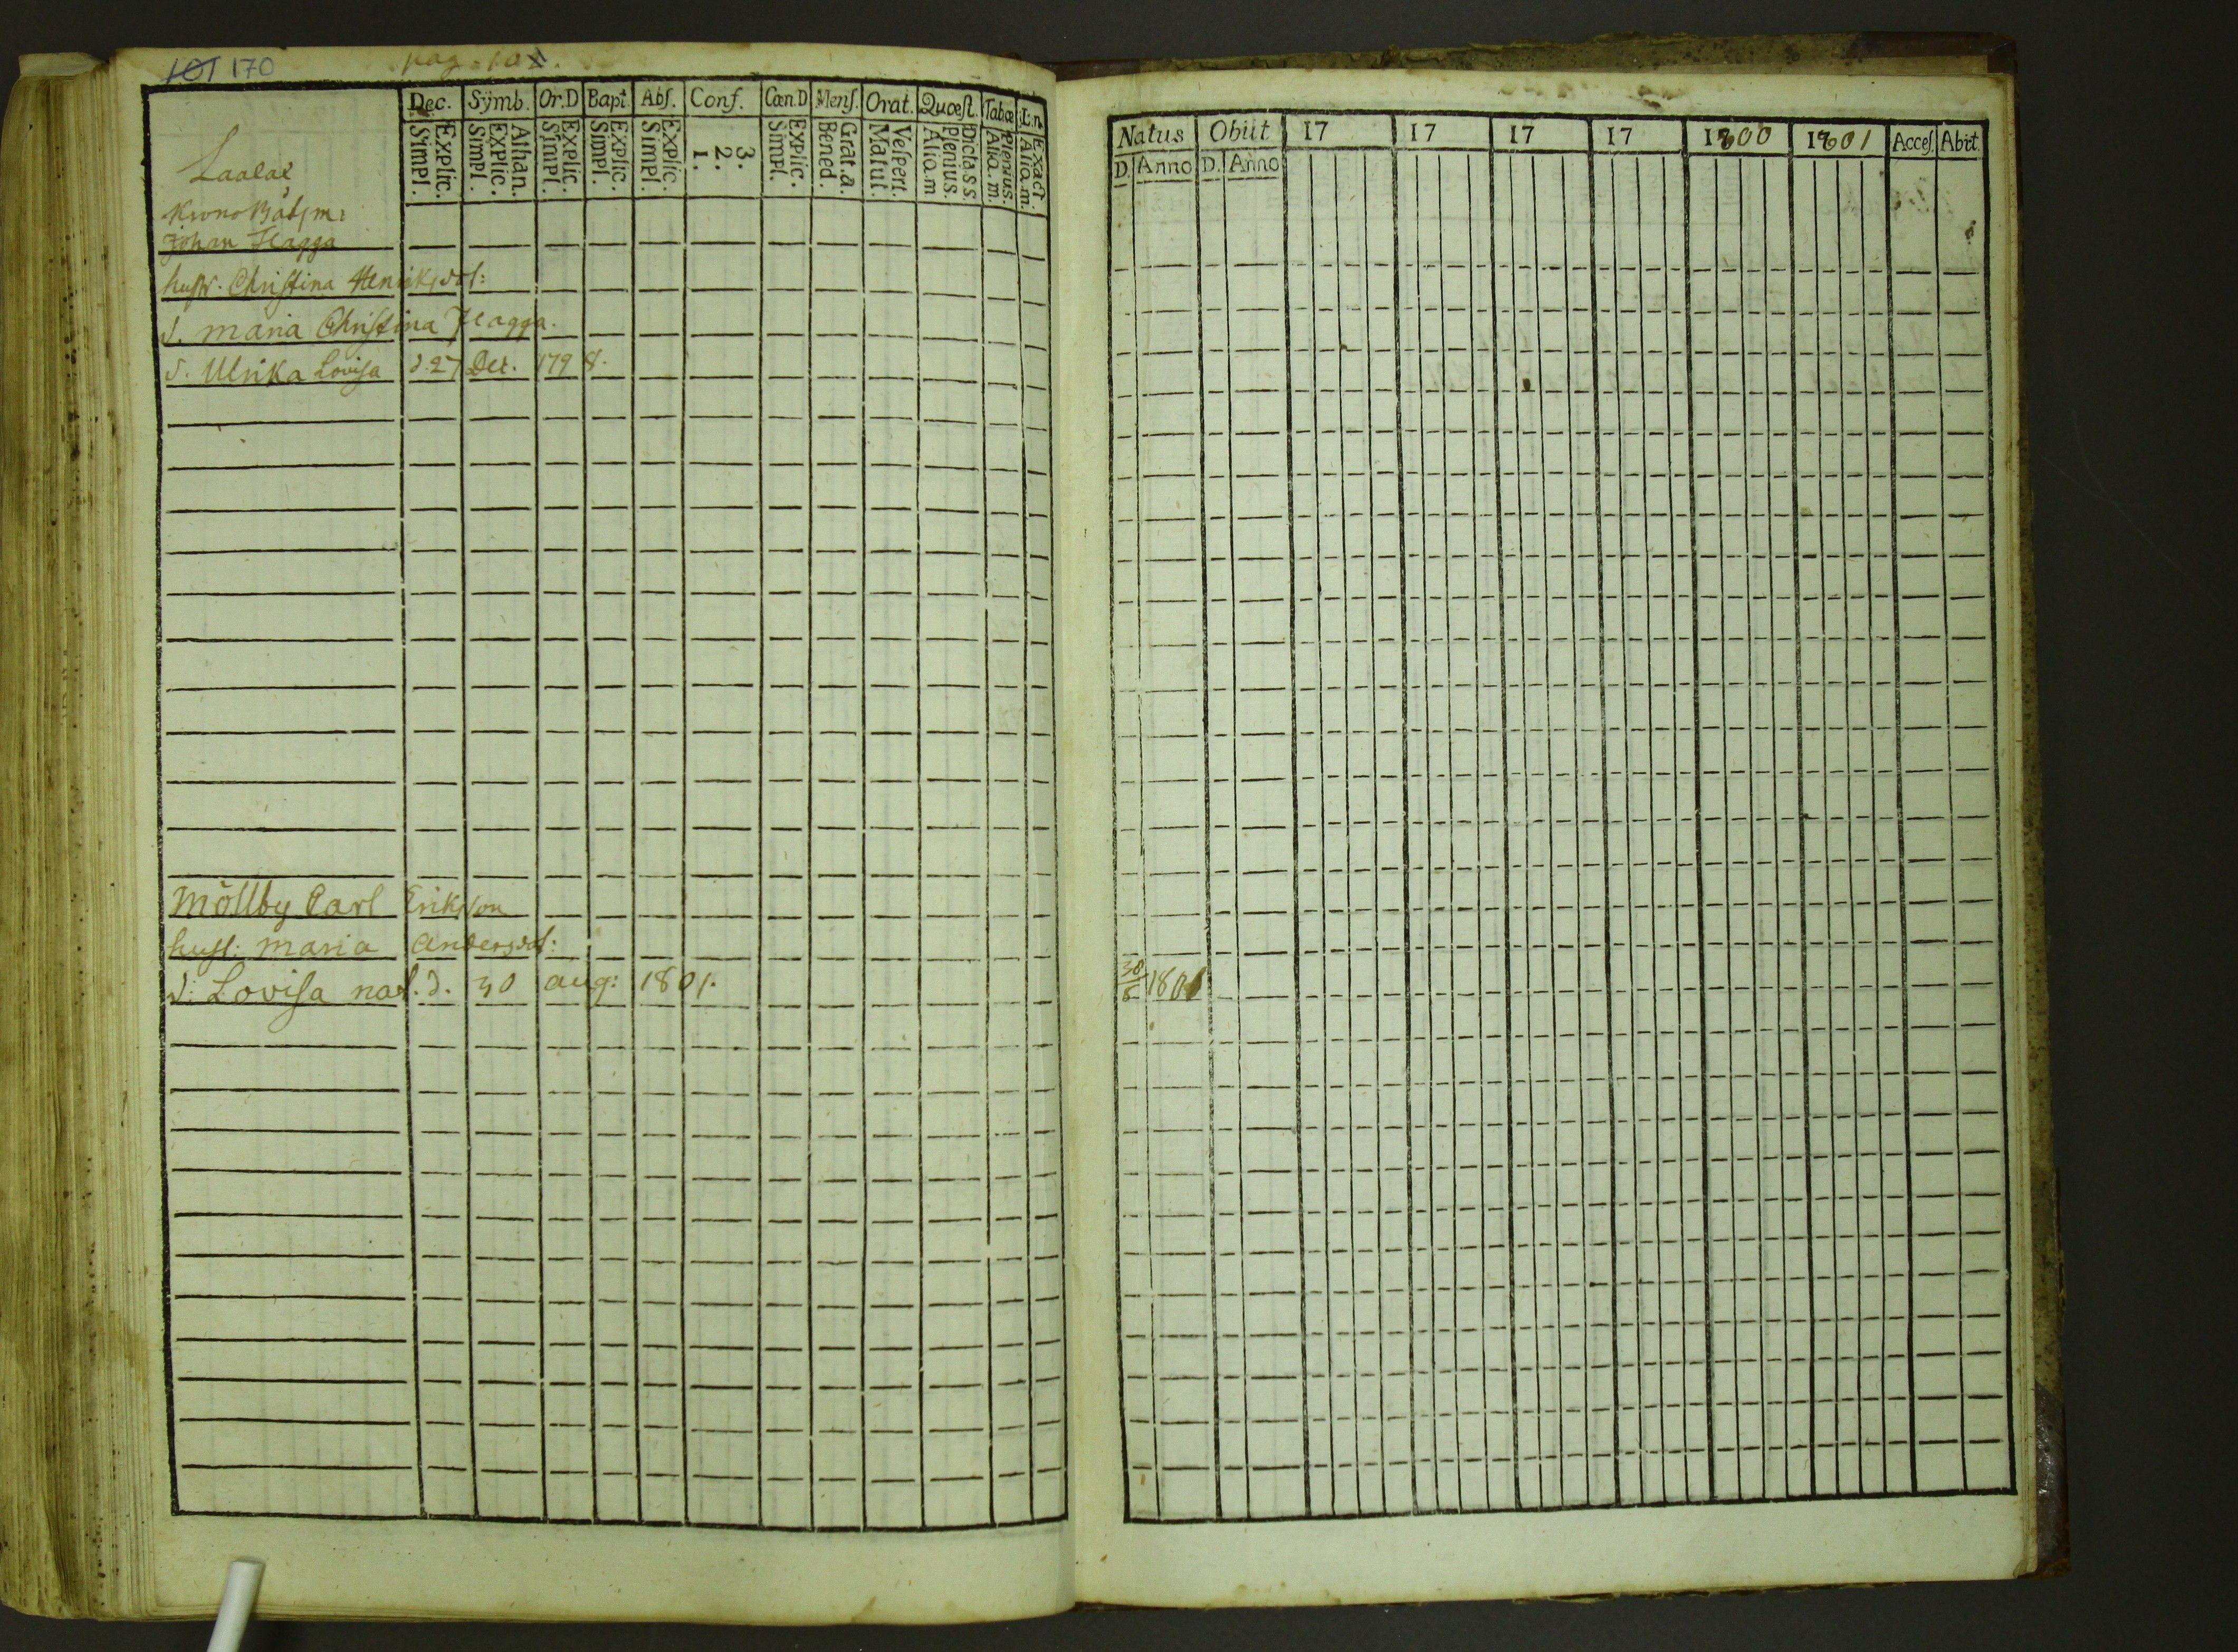 101 170
pag.
Dec. Symb. Or.D Bapt. Abs. Conf. Cœn.D Mens. Orat. Quœst. Tabœ L:n.
Explic. Simpl. Athan. Explic. Simpl. Explic. Simpl. Explic. Simpl. Explic. Simpl. 3. 2. 1. Explic. Simpl. Grat.a. Bened. Vespert. Matut. Dicta s.s. Plenius. Alio.m Plenius. Alia.m. Exact. Alia.m.
Krono Båtsm:
Johan Flagga
hustr. Christina Henriksdot:
d. maria Christina Flagga.
d. Ulrika Lovisa d. 27 Dec. 1798.
Möllby Carl Eriksson
hust: maria andersdot:
d: Lovisa nat. d. 30 aug: 1801.
Natus Obiit 17 17 17 17 1800 1801 Acces. Abit.
D. Anno D. Anno
30/8 1801